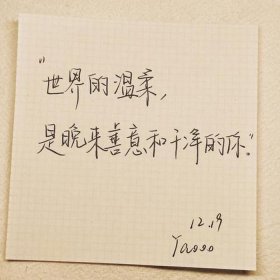 "世界的温柔,
是晚来善意和干净的你."
12.19
Yaooo